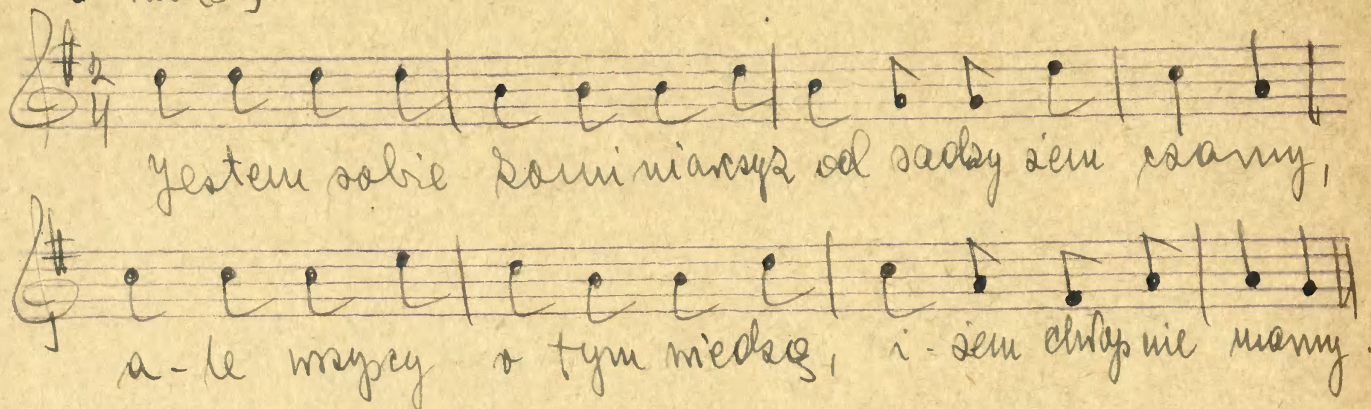 2
4
Jestem sobie kominiarczyk od sadzy żem czarny,
a-le wszyscy o tym wiedzą, i-żem chłop nie marny.